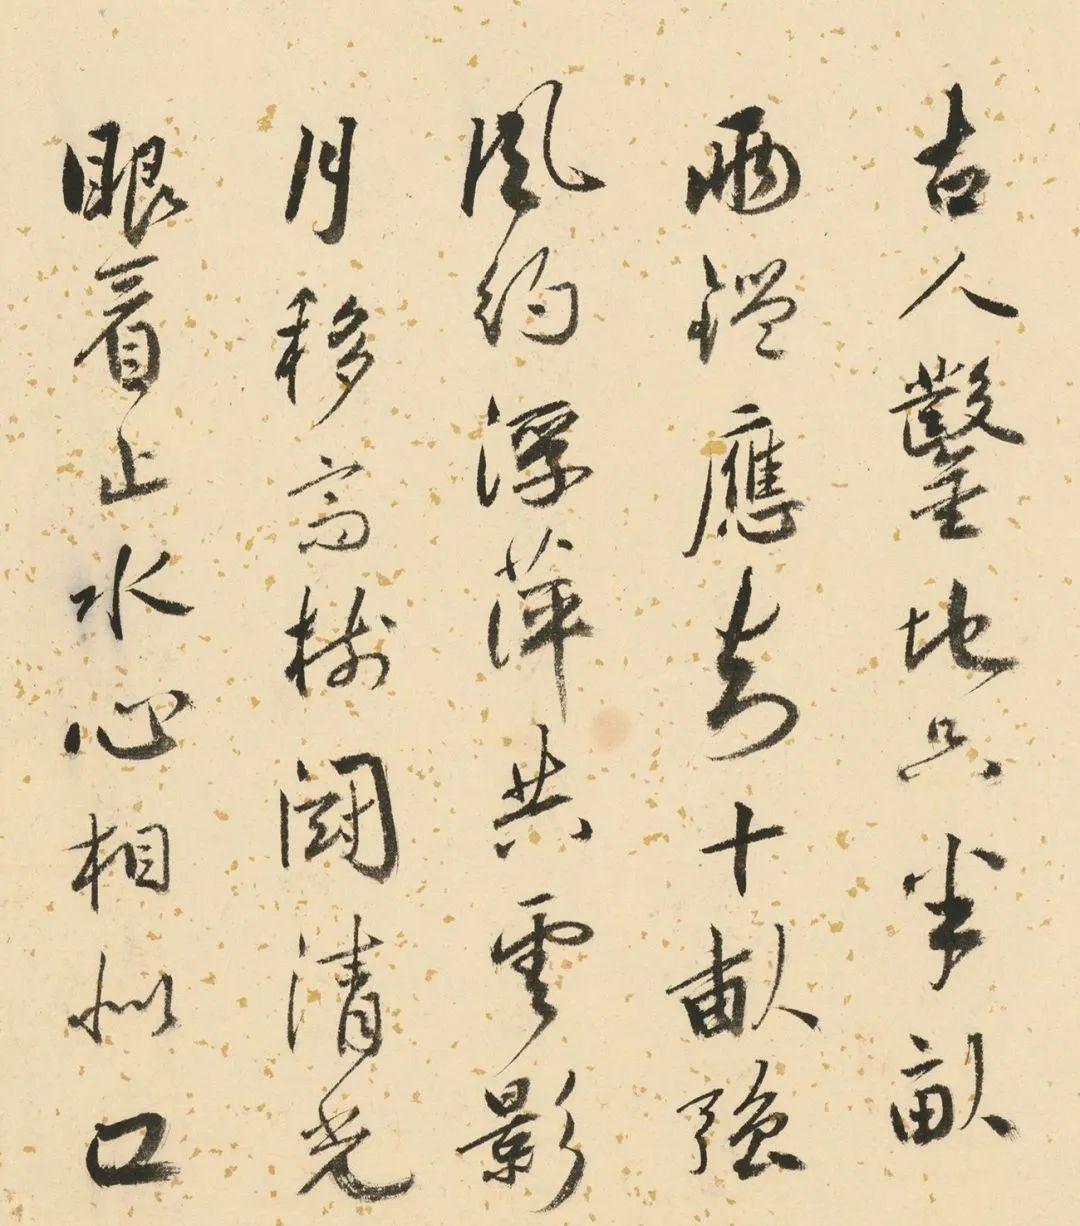 古人鑿地只半畝
兩鑑應十畝強
風約浮萍共雲影
月移高樹闘清光
眼看止水心相似口